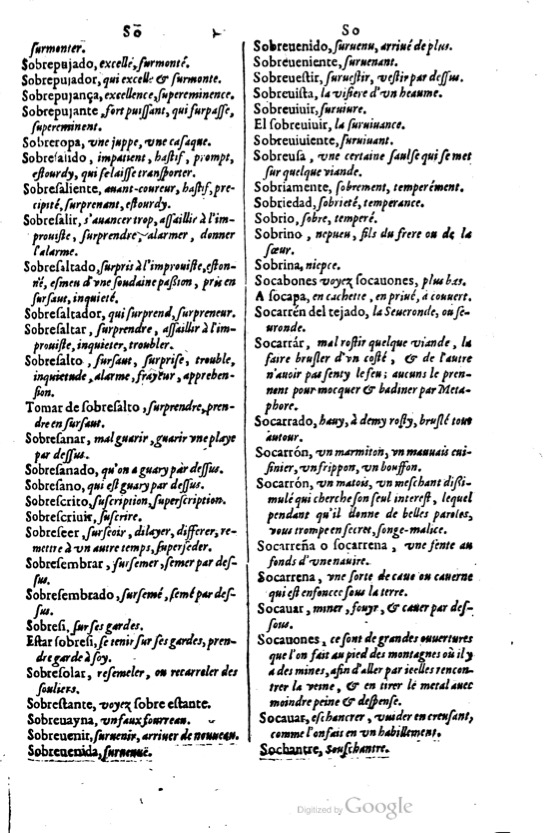 So
So
ſurmonter.
Sobrepujado, excellé, ſurmonté.
Sobrepujador, qui excelle & ſurmonte.
Sobrepujança, excellence, ſupereminence.
Sobrepujante, fort puiſſant, qui ſurpaſſe,
ſupereminent.
Sobreropa, vne juppe, vne caſaque.
Sobreſalido, impatient, haſtif, prompt,
eſtourdy, qui ſe laiſſe tranſporter.
Sobreſaliente, auant-coureur, haſtif, pre-
cipité, ſurprenant, eſtourdy.
Sobreſalir, s'auancer trop, aſſaillir à l'im-
prouiſte, ſurprendre, alarmer, donner
l'alarme.
Sobreſaltado, ſurpris à l'improuiſte, eſton-
né, eſmeu d'vne ſoudaine paſſion, pris en
ſurſaut, inquieté.
Sobreſaltador, qui ſurprend, ſurpreneur.
Sobreſaltar, ſurprendre, aſſaillir à l'im-
prouiſte, inquieter, troubler.
Sobreſalto, ſurſaut, ſurpriſe, trouble,
inquietude, alarme, frayeur, apprehen-
ſion.
Tomar de ſobreſalto, ſurprendre, pren-
dre en ſurſaut.
Sobreſanar, mal guarir, guarir vne playe
par deſſus.
Sobreſanado, qu'on a guary par deſſus.
Sobreſano, qui eſt guary par deſſus.
Sobreſcrito, ſuſcription, ſuperſcription.
Sobreſcriuir, ſuſcrire.
Sobreſeer, ſurſeoir, dilayer, differer, re-
mettre à vn autre temps, ſuperſeder.
Sobreſembrar, ſurſemer, ſemer par deſ-
ſus.
Sobreſembrado, ſurſemé, ſemé par deſ-
ſus.
Sobreſi, ſur ſes gardes.
Eſtar ſobreſi, ſe tenir ſur ſes gardes, pren-
dre garde à ſoy.
Sobreſolar, reſemeler, ou recarreler des
ſouliers.
Sobreſtante, voyez ſobre eſtante.
Sobreuayna, vn faux fourreau.
Sobreuenir, ſuruenir, arriuer de nouueau.
Sobreuenida, ſuruenuë.
Sobreuenido, ſuruenu, arriué de plus.
Sobreueniente, ſuruenant.
Sobreueſtir, ſurueſtir, veſtir par deſſus.
Sobreuiſta, la viſiere d'vn heaume.
Sobreuiuir, ſuruiure.
El ſobreuiuir, la ſuruiuance.
Sobreuiuiente, ſuruiuant.
Sobreuſa, vne certaine ſaulſe qui ſe met
ſur quelque viande.
Sobriamente, ſobrement, temperément.
Sobriedad, ſobrieté, temperance.
Sobrio, ſobre, temperé.
Sobrino, nepueu, fils du frere ou de la
ſœur.
Sobrina, niepce.
Socabones voyez ſocauones, plus bas.
A ſocapa, en cachette, en priué, à couuert.
Socarrén del tejado, la Seueronde, ou ſe-
uronde.
Socarrár, mal roſtir quelque viande, la
faire bruſler d'vn coſté, & de l'autre
n'auoir pas ſenty le feu; aucuns le pren-
nent pour mocquer & badiner par Meta-
phore.
Socarrado, hauy, à demy roſty, bruſlé tout
autour.
Socarrón, vn marmiton, vn mauuais cui-
ſinier, vn frippon, vn bouffon.
Socarrón, vn matois, vn meſchant diſſi-
mulé qui cherche ſon ſeul intereſt, lequel
pendant qu'il donne de belles paroles,
vous trompe en ſecret, ſonge-malice.
Socarreña o ſocarrena, vne fente au
fonds d'vne nauire.
Socarrena, vne ſorte de caue ou cauerne
qui eſt enfoncee ſous la terre.
Socauar, miner, fouyr, & cauer par deſ-
ſous.
Socauones, ce ſont de grandes ouuertures
que l'on fait au pied des montagnes où il y
a des mines, afin d'aller par icelles rencon-
trer la veine, & en tirer le metal auec
moindre peine & deſpenſe.
Socauar, eſchancrer, vuider en creuſant,
comme l'on fait en vn habillement.
Sochantre, Souſchantre.
Digitized by Google